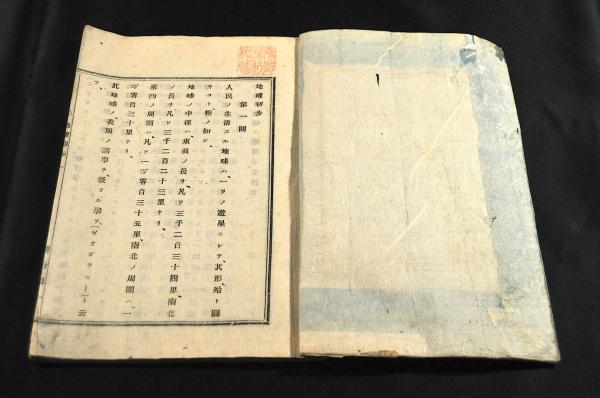 地理初歩
第一回
人民ノ生活スル地球ハ、一ツノ遊星ニシテ、其形殆ト圓
キコト、橙ノ如シ、
地球ノ中徑ハ、東西ノ長サ、凡ソ三千二百三十四里、南北
ノ長サ、凡ソ三千二百二十三里ナリ、
東西ノ周圍ハ、凡ソ一万零百三十五里、南北ノ周圍ハ、一
万零百三十里ナリ、
此地球ノ、表面ノ諸事ヲ、敎フル學ヲ、「ゼオガラヒー」ト云
フ、